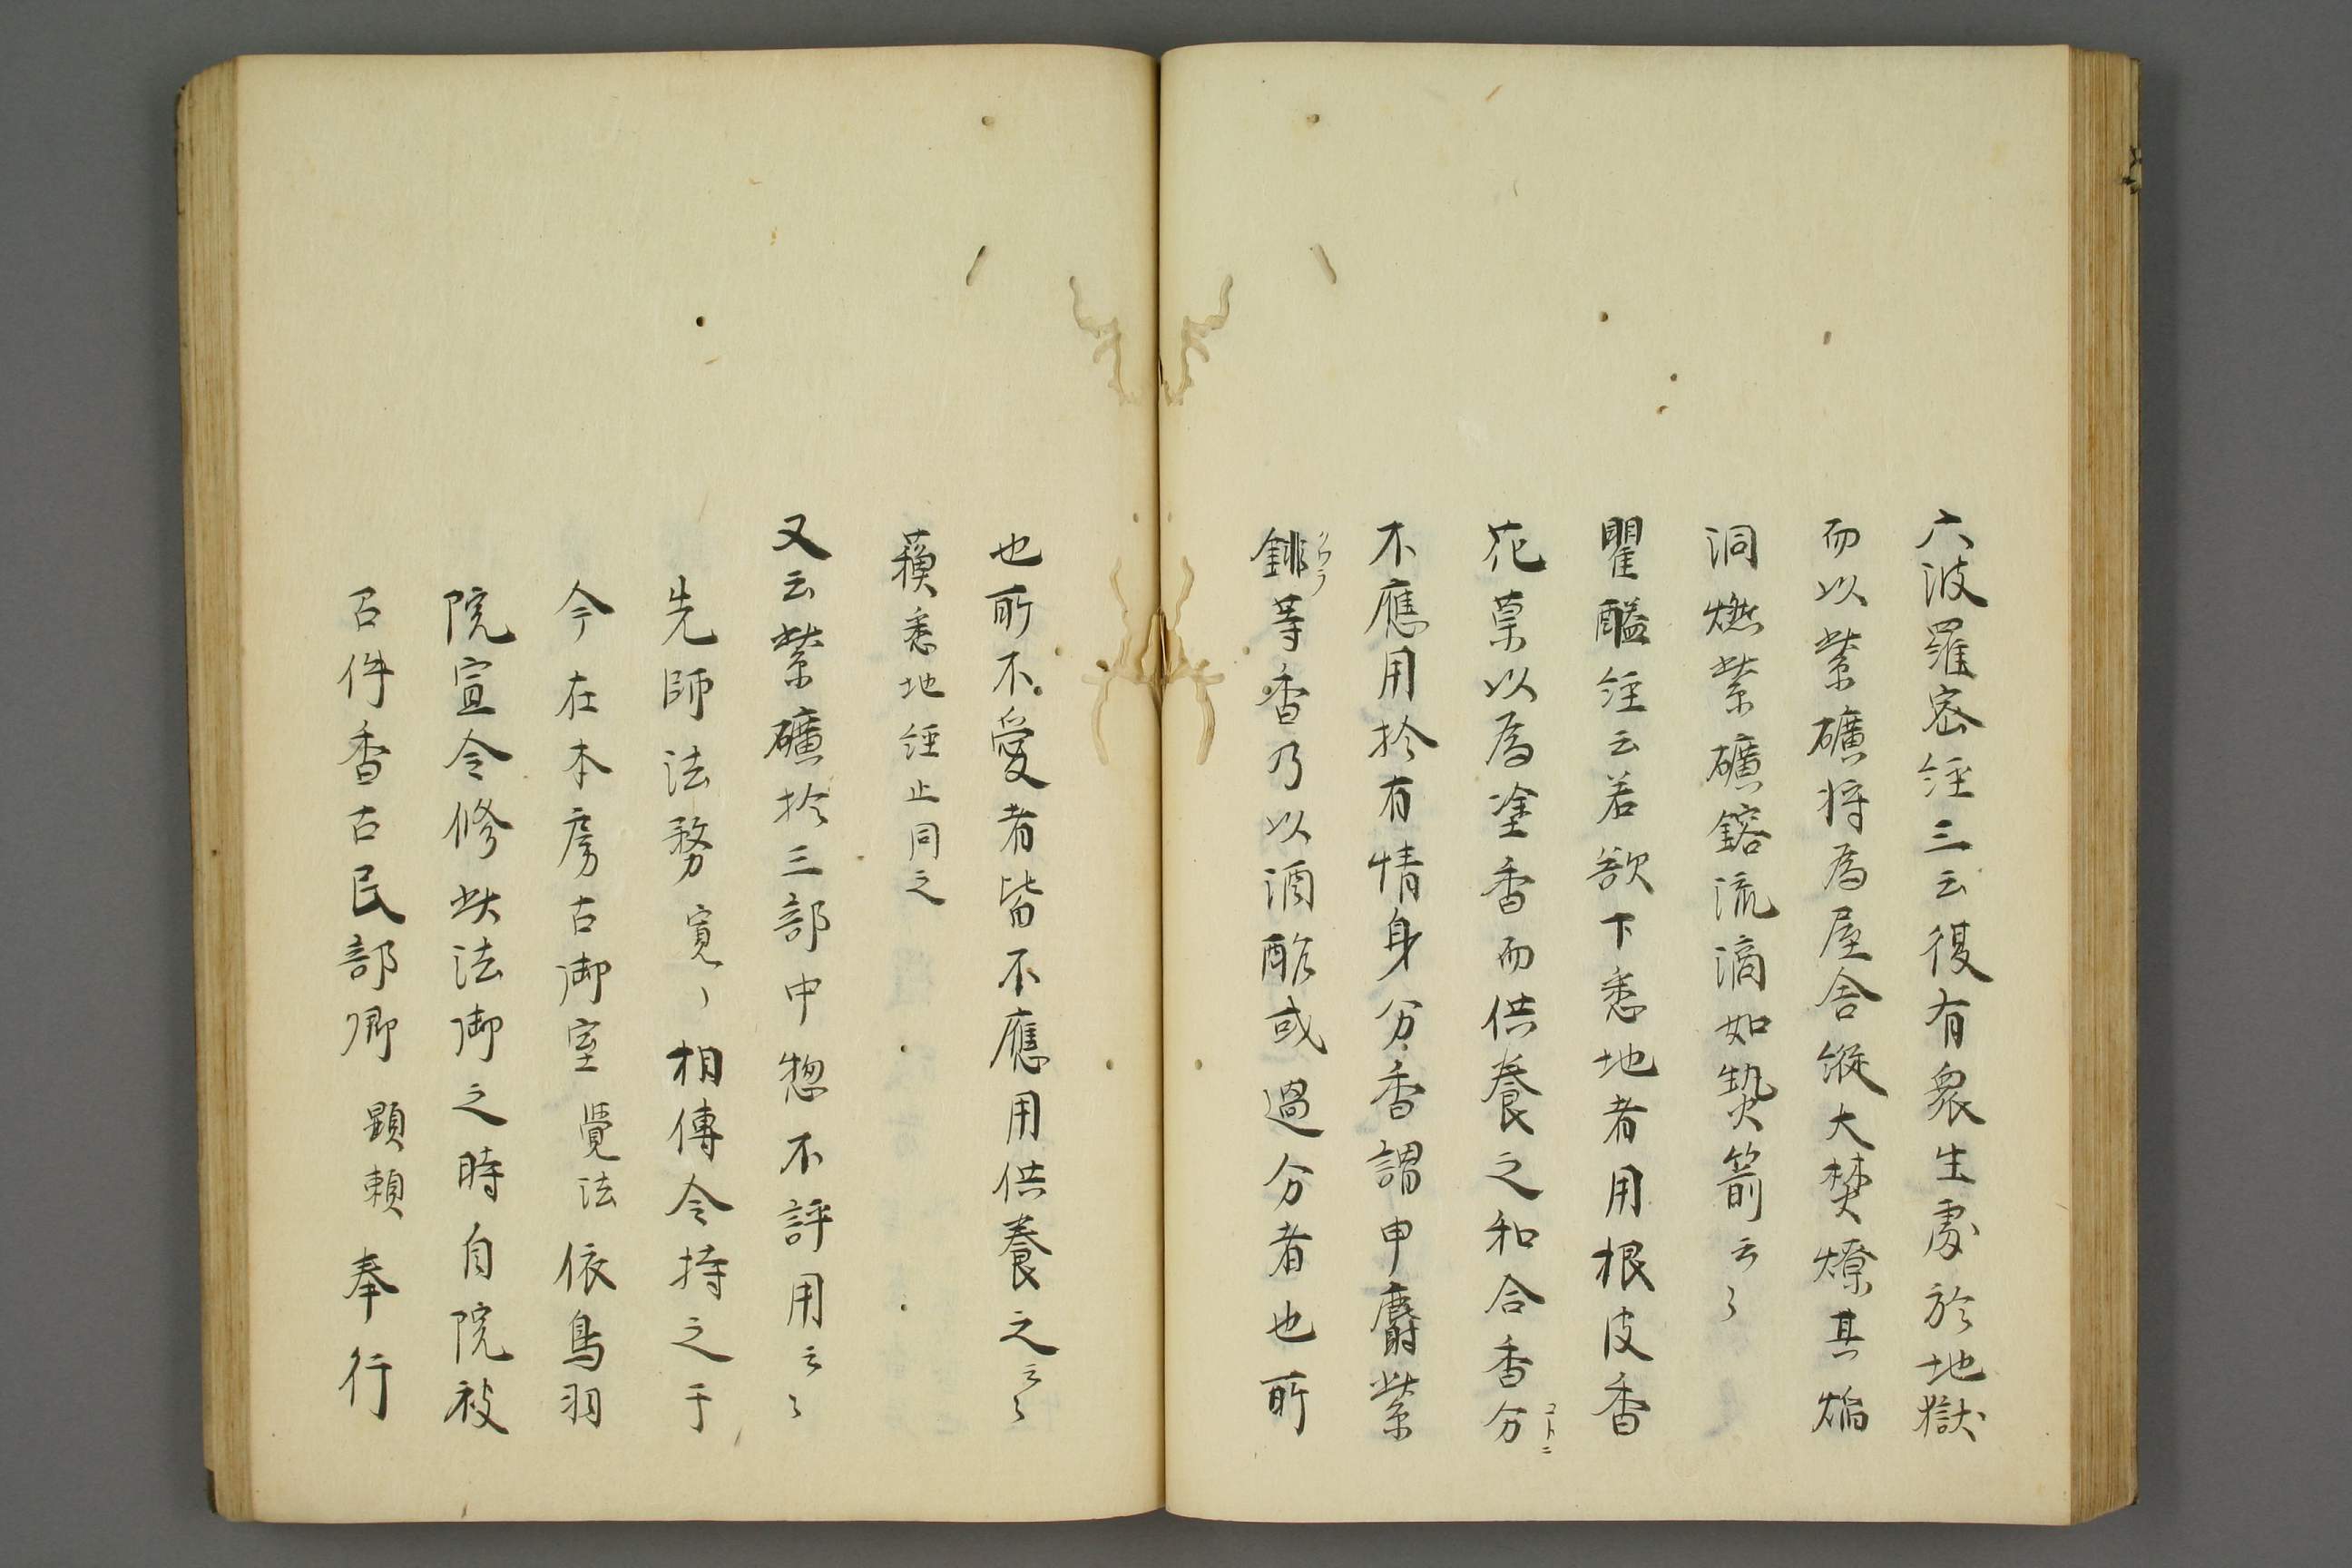 六波羅密經三云復有衆生處於地獄
而以紫礦将為屋舎縦大焚燎其焔
洞燃紫礦鎔流滴如𤍠箭云々
瞿醯經云若欲下悉地者用根皮香
花菓以為塗香而供養之和合香分コトニ
不應用於有情身分香謂甲麝紫
等香乃以酒酢或過分者也所
也所不愛者皆不應用供養之云々
蘓悉地經止同之
又云紫礦於三部中惣不許用云々
先師法務寛々相傳令持之于
今在本房古御室覺法依鳥羽
院宣令修此法御之時自院被
召件香古民部卿顕頼奉行